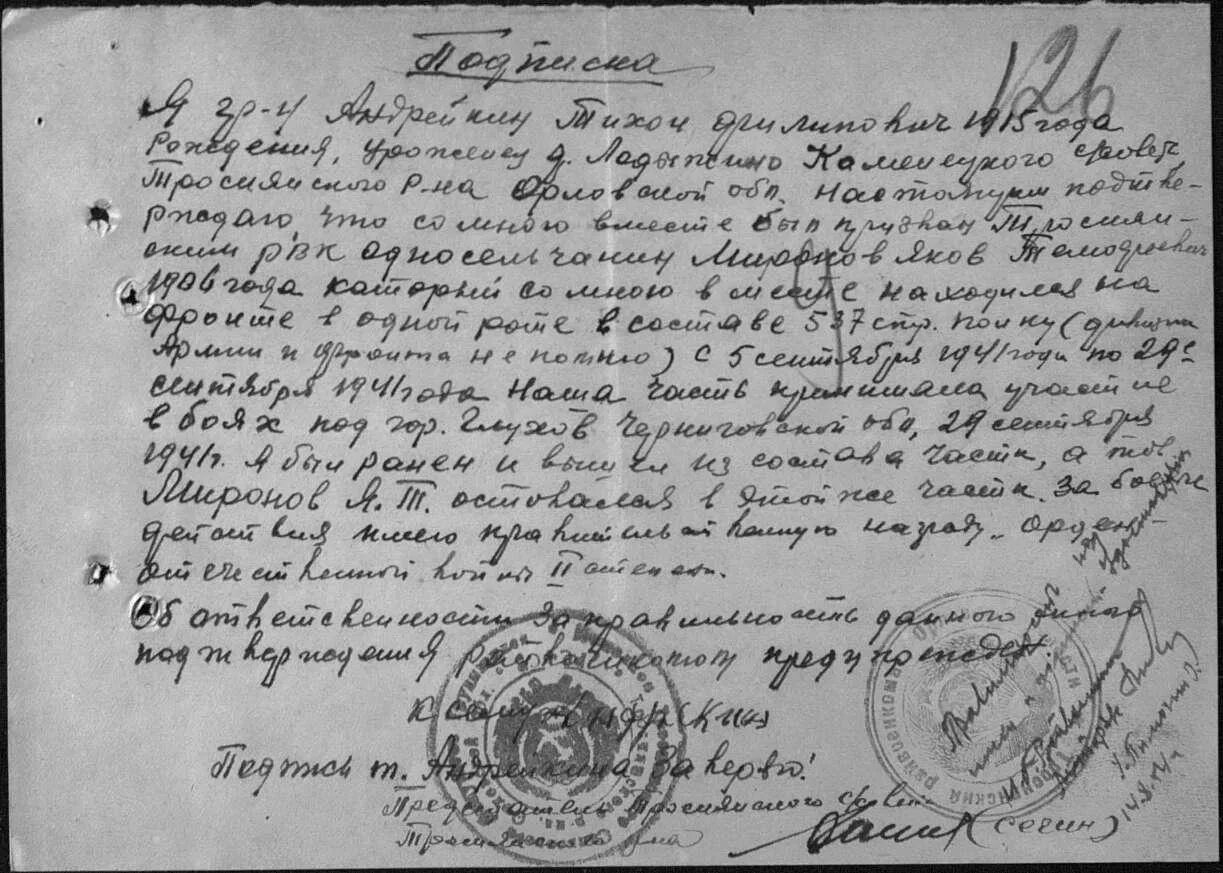 126
Подписка
Я гр-н Андрейкин Тихон Филипович 1915 года
Рождения, урожинец д. Ладыжино Каменецкого с/совета
Тросиянского Р-на Орловской обл. настоящим подтве-
рждаю, что со мною вместе был призван Тросиян-
ским РВК односельчанин Миронов Яков
1906 года каторый со мною в месте находился на
фронте в одной роте в составе 537 стр. полку (дивизии
Армии и фронта не помню) с 5 сентября 1941 года по 29е
сентября 1941 года наша часть принимала участие
в боях под гор. Глухов Черниговской обл, 29 сентября
1941г. я был ранен и выбыл из состава части, а тов.
Миронов Я.Т. оставался в этой же части. За боевые
действия имею правительственную награду „Орден-
отечественной войны II степени.
Об ответственности за правильность данного
подтверждения предупрежден.
к сему
Подпись т. Андрейкина Заверяю!
Председатель Тросиянского с/совета
Тросиянского р-на
(Сечин)